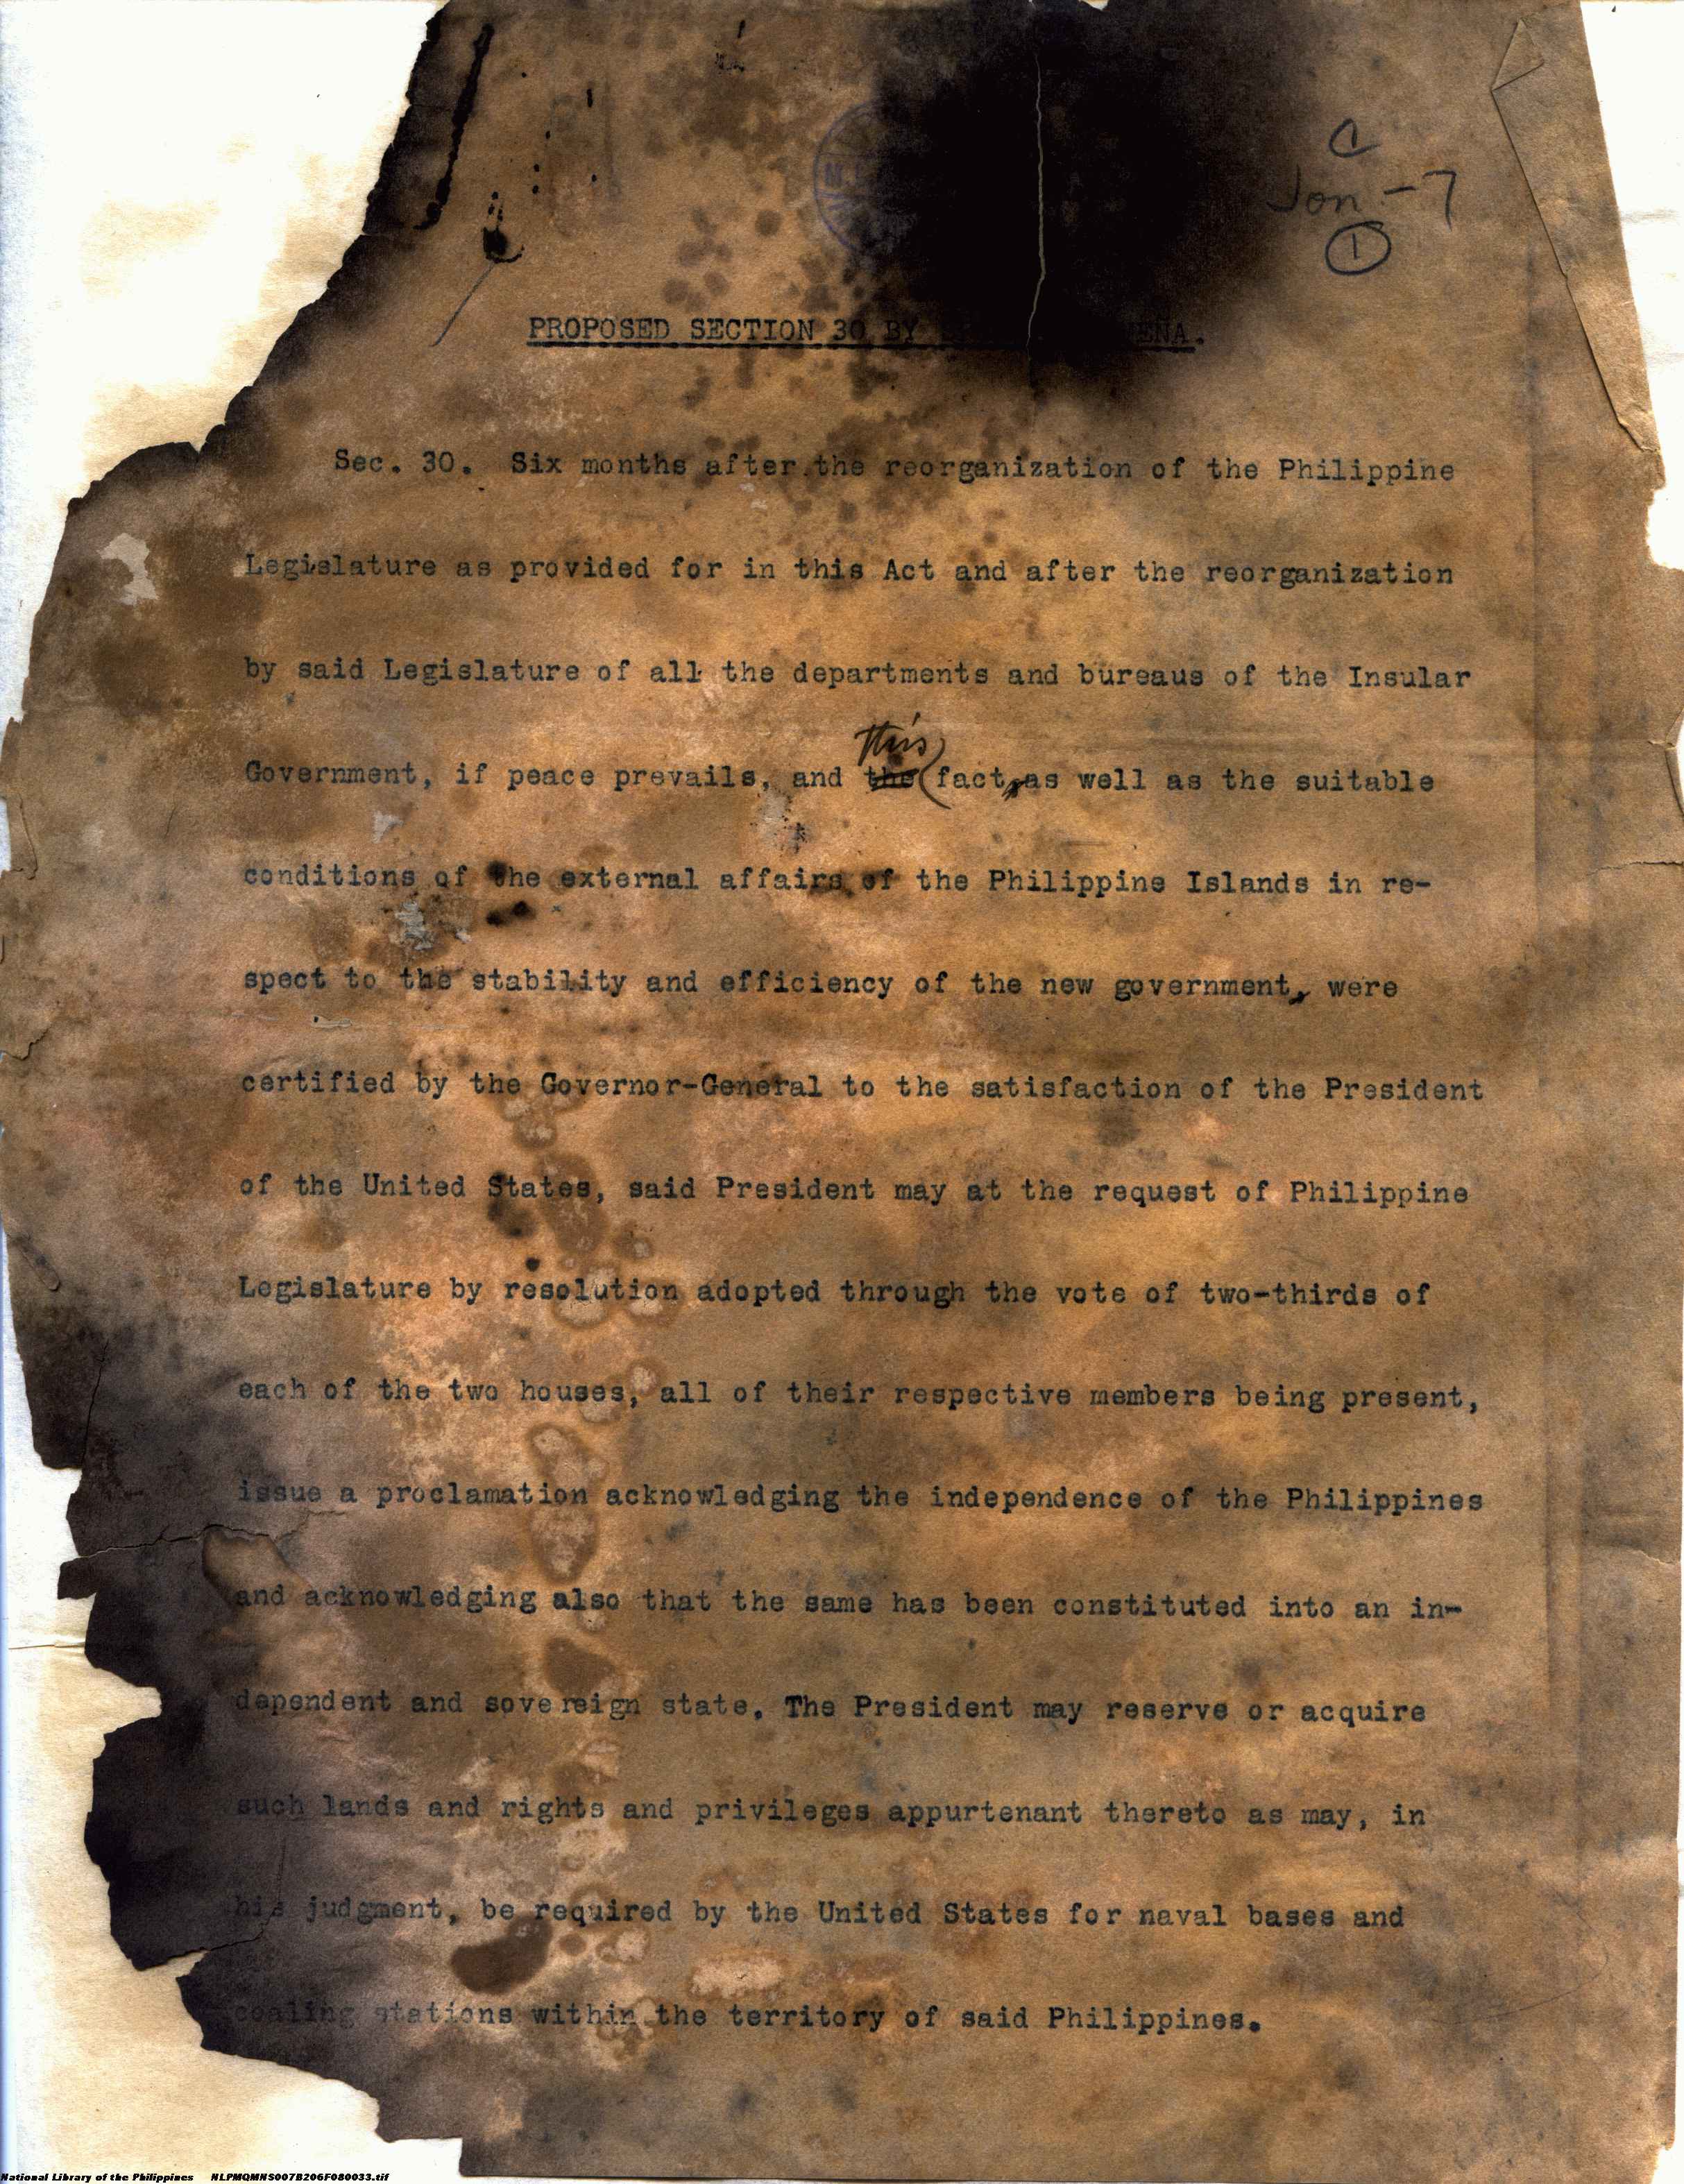 C
Jon-7
1
PROPOSED SECTION 30 BY ENA.
Sec. 30. Six months after the reorganization of the Philippine
Legislature as provided for in this Act and after the reorganization
by said Legislature of all the departments and bureaus of the Insular
this
Government, if peace prevails, and the fact, as well as the suitable
conditions of the external affairs of the Philippine Islands in re-
spect to the stability and efficiency of the new government, were
certified by the Governor-General to the satisfaction of the President
of the United States, said President may at the request of Philippine
Legislature by resolution adopted through the vote of two-thirds of
each of the two houses, all of their respective members being present,
issue a proclamation acknowledging the independence of the Philippines
and acknowledging also that the same has been constituted into an in-
dependent and sovereign state. The President may reserve or acquire
such lands and rights and privileges appurtenant thereto as may, in
his judgment, be required by the United States for naval bases and
coaling stations within the territory of said Philippines.
National Library of the Philippines NLPMQMNS007B206F080033.tif